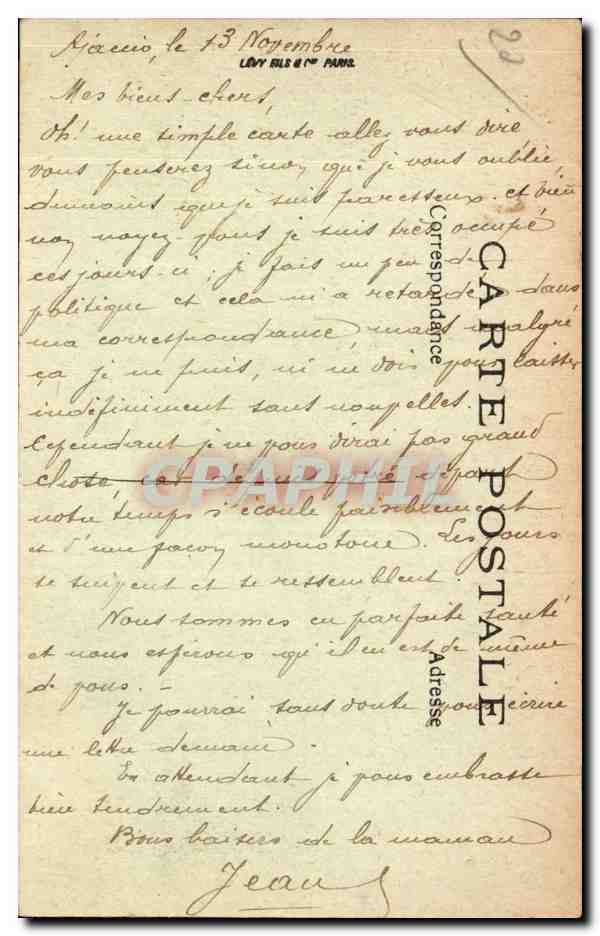 Ajaccio, le 13 Novembre
LÉVY FILS & Cie PARIS
20
Mes biens chers,
Oh! une simple carte allez vous dire,
vous penserez sinon que je vous oublie,
du moins que je suis paresseux. et bien
non voyez-vous je suis très ocupé
ces jours-ci; je fais un peu de
politique et cela m'a retardé dans
ma correspondance, mais malgré
ça je ne puis, ni ne dois vous laisser
indéfiniment sans nouvelles.
Cependant je ne vous dirai pas grand
chose, car depuis votre départ
notre temps s'écoule paisiblement
et d'une façon monotone. Les jours
se suivent et se ressemblent.
Nous sommes en parfaite santé
et nous espérons qu'il en est de même
de vous. —
Je pourrai sans doute vous écrire
une lettre demain.
En attendant je vous embrasse
bien tendrement.
Bons baisers de la maman
Jean
CARTE POSTALE
Correspondance
Adresse
CPAPHIL